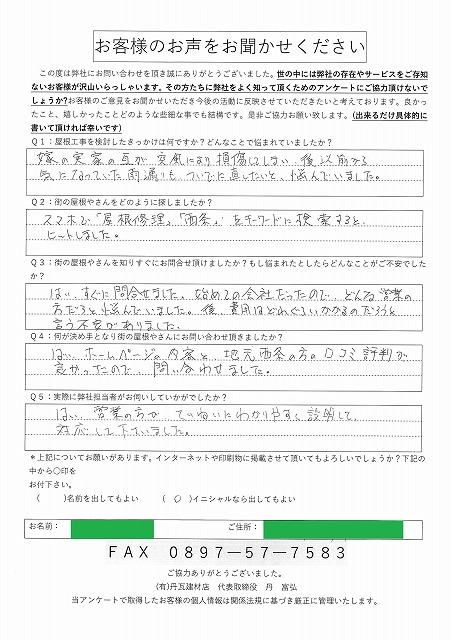 お客様のお声をお聞かせください
この度は弊社にお問い合わせを頂き誠にありがとうございました。世の中には弊社の存在やサービスをご存知
ないお客様が沢山いらっしゃいます。その方たちに弊社をよく知って頂くためのアンケートにご協力頂けないで
しょうか?お客様のご意見をお聞かせいただき今後の活動に反映させていきたいと考えております。良かっ
たこと、嬉しかったことどのような些細な事でも結構です。是非ご協力お願い致します。(出来るだけ具体的に
書いて頂ければ幸いです)
Q1:屋根工事を検討したきっかけは何ですか?どんなことで悩まれていましたか?
嫁の実家の瓦が突風により損傷してしまい、後以前から
気になっていた雨漏りもついでに直したいと、悩んでいました。
Q2:街の屋根やさんをどのように探しましたか?
スマホで「屋根修理」「西条」をキーワードに検索すると、
ヒットしました。
Q3:街の屋根やさんを知りすぐにお問合せ頂けましたか?もし悩まれたとしたらどんなことがご不安でした
か?
はい、すぐに問合せました。始めての会社だったので、どんな営業の
方だろうと悩んでいました。後、費用はどれぐらいかかるのだろうと
言う不安がありました。
Q4:何が決め手となり街の屋根やさんにお問い合わせ頂きましたか?
はい、ホームページの内容と地元西条の方の口コミ評判が
良かったので、問い合わせました。
Q5:実際に弊社担当者がお伺いしていかがでしたか?
はい、営業の方が、ていねいにわかりやすく説明して、
対応して下さいました。
*上記についてお願いがあります。インターネットや印刷物に掲載させて頂いてもよろしいでしょうか?下記の
中から○印を
お付下さい。
( )名前を出してもよい (○)イニシャルなら出してもよい
お名前: ご住所:
FAX 0897-57-7583
ご協力ありがとうございました。
(有)丹瓦建材店 代表取締役 丹 富弘
当アンケートで取得したお客様の個人情報は関係法規に基づき厳正に管理いたします。